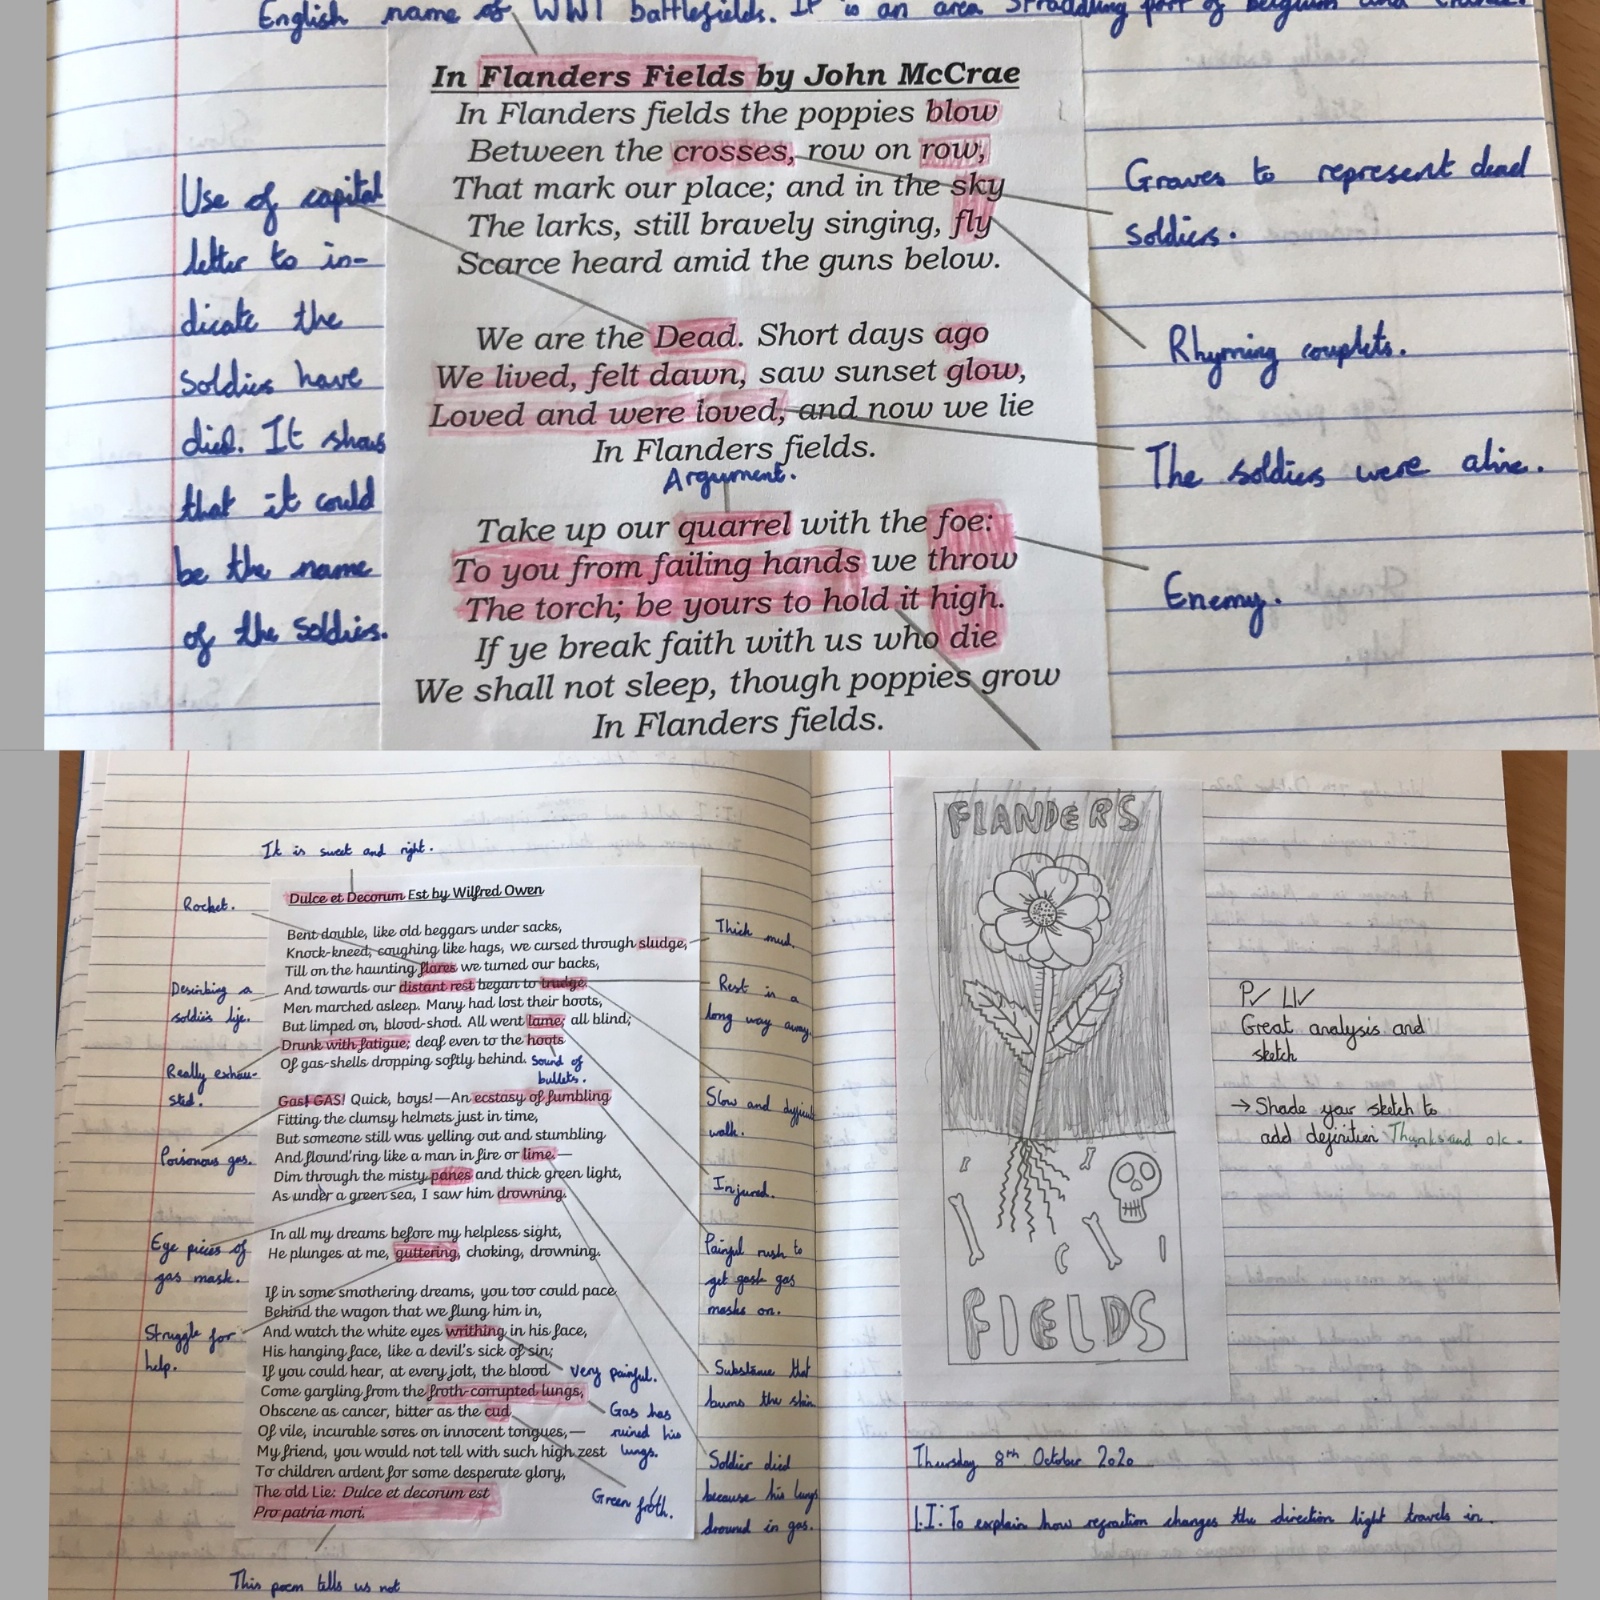 English name of WW1 battlefields. It is an area straddling part of Belgium and France.
In Flanders Fields by John McCrae
In Flanders fields the poppies blow
Between the crosses, row on row,
That mark our place; and in the sky
The larks, still bravely singing, fly
Scarce heard amid the guns below.
We are the Dead. Short days ago
We lived, felt dawn, saw sunset glow,
Loved and were loved, and now we lie
In Flanders fields.
Argument.
Take up our quarrel with the foe:
To you from failing hands we throw
The torch; be yours to hold it high.
If ye break faith with us who die
We shall not sleep, though poppies grow
In Flanders fields.
Use of capital
letter to in-
dicate the
soldies have
died. It shows
that it could
be the name
of the soldies.
Graves to represent dead
soldies.
Rhyming couplets.
The soldies were alive.
Enemy.
It is sweet and right.
Dulce et Decorum Est by Wilfred Owen
Bent double, like old beggars under sacks,
Knock-kneed, coughing like hags, we cursed through sludge,
Till on the haunting flares we turned our backs,
And towards our distant rest began to trudge.
Men marched asleep. Many had lost their boots,
But limped on, blood-shod. All went lame; all blind;
Drunk with fatigue; deaf even to the hoots
Of gas-shells dropping softly behind.
Sound of
bullets.
Gas! GAS! Quick, boys!—An ecstasy of fumbling
Fitting the clumsy helmets just in time,
But someone still was yelling out and stumbling
And flound'ring like a man in fire or lime.—
Dim through the misty panes and thick green light,
As under a green sea, I saw him drowning.
In all my dreams before my helpless sight,
He plunges at me, guttering, choking, drowning.
If in some smothering dreams, you too could pace
Behind the wagon that we flung him in,
And watch the white eyes writhing in his face,
His hanging face, like a devil's sick of sin;
If you could hear, at every jolt, the blood
Come gargling from the froth-corrupted lungs,
Obscene as cancer, bitter as the cud
Of vile, incurable sores on innocent tongues,—
My friend, you would not tell with such high zest
To children ardent for some desperate glory,
The old Lie: Dulce et decorum est
Pro patria mori.
Very painful.
Gas has
ruined his
lungs.
Green froth.
This poem tells us not
Rocket.
Describing a
soldies life.
Really exhau-
sted.
Poisonous gas.
Eye pieces of
gas mask.
Struggle for
help.
Thick mud.
Rest is a
long way away.
Slow and difficult
walk.
Injured.
Painful rush to
get gas
masks on.
Substance that
burns the skin
Soldier died
because his lungs
dround in gas.
FLANDERS
FIELDS
P✓ LI✓
Great analysis and
sketch
→ Shade your sketch to
add definition Thanks and ok.
Thursday 8th October 2020
L.I: To explain how refraction changes the direction light travels in.